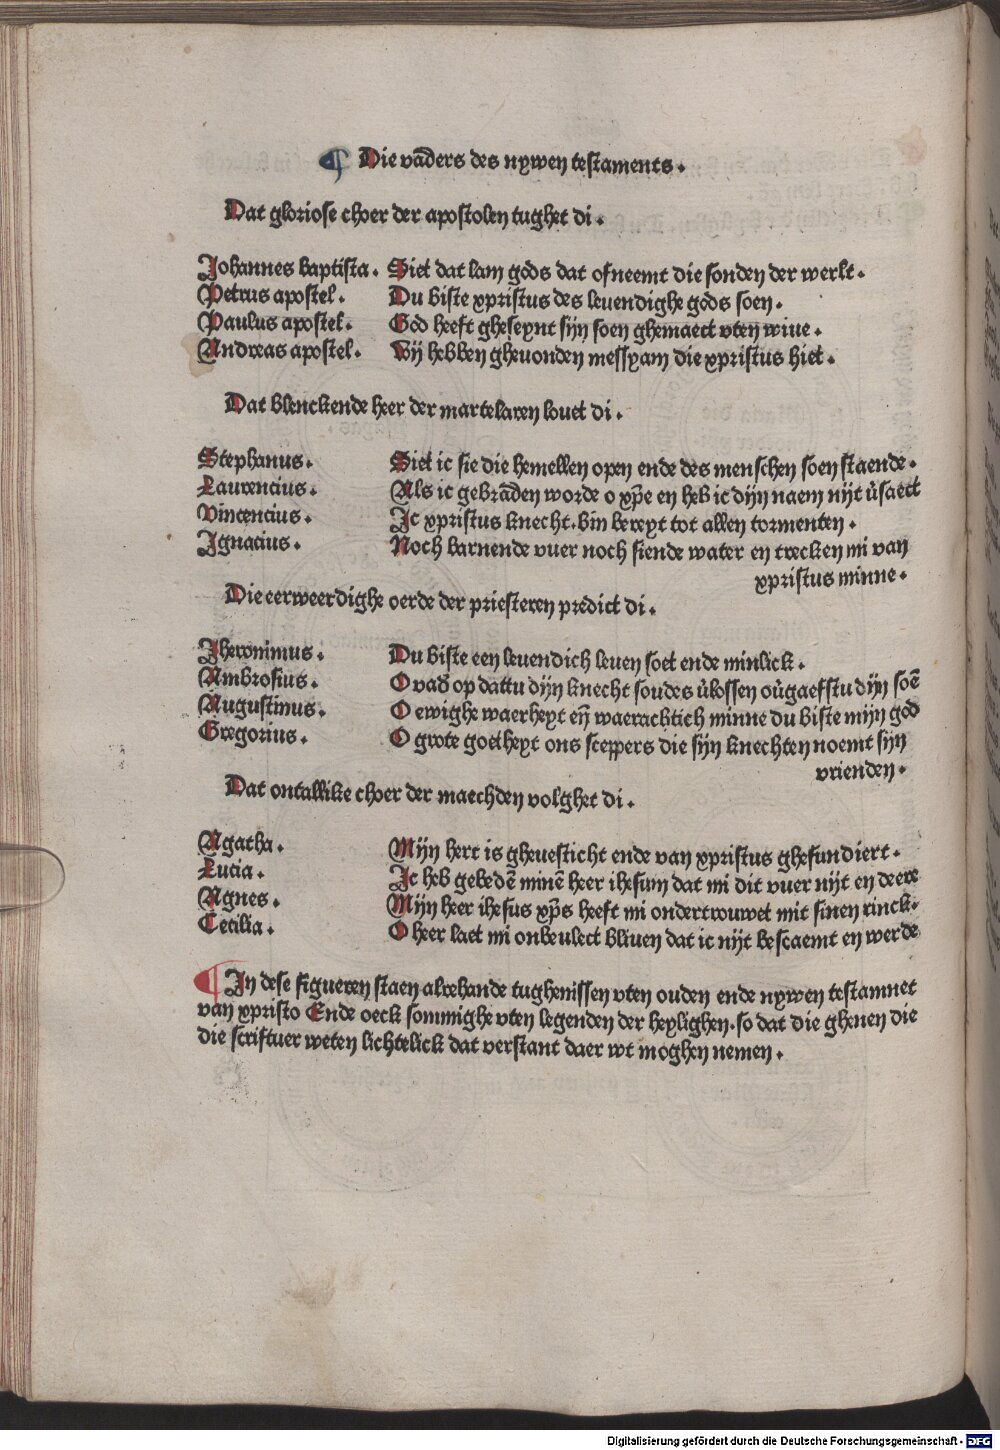 ¶ Die vad̄ers des nywen testaments.
Dat gloriose choer der apostolen tughet di.
Johannes baptista. Siet dat lam gods dat ofneemt die sonden der werlt.
Petrus apostel. Du biste xpristus des leuendighe gods soen.
Paulus apostel. God heeft gheseynt sijn soen ghemaect vten wiue.
Andreas apostel. Wij hebben gheuonden messyam die xpristus hiet.
Dat blenckende heer der martelaren louet di.
Stephanus. Siet ic sie die hemellen open ende des menschen soen staende.
Laurencius. Als ic gebrād̄en worde o xp̄e en heb ic dijn naem nijt v̄saect
Vincencius. Jc xpristus knecht. bin bereyt tot allen tormenten.
Jgnacius. Noch barnende vuer noch siende water en trecken mi van
xpristus minne.
Die eerweerdighe oerde der priesteren predict di.
Jheronimus. Du biste een leuendich leuen soet ende minlick.
Ambrosius. O vad̄ op dattu dijn knecht soudes v̄lossen ov̄gaefstu dijn soē
Augustinus. O ewighe waerheyt eñ waerachtich minne du biste mijn god
Gregorius. O grote goetheyt ons sceppers die sijn knechten noemt sijn
vrienden.
Dat ontallike choer der maechden volghet di.
Agatha. Mijn hert is gheuesticht ende van xpristus ghefundiert.
Lucia. Jc heb gebedē minē heer ihesum dat mi dit vuer nijt en deere
Agnes. Mijn heer ihesus xp̄s heeft mi ondertrouwet mit sinen rinck.
Cecilia. O heer laet mi onbeulect bliuen dat ic nijt bescaemt en werde
¶ Jn dese figueren staen alrehande tughenissen vten ouden ende nywen testamnet
van xpristo Ende oeck sommighe vten legenden der heylighen. so dat die ghenen die
die scriftuer weten lichtelick dat verstant daer wt moghen nemen.
Digitalisierung gefördert durch die Deutsche Forschungsgemeinschaft - DFG